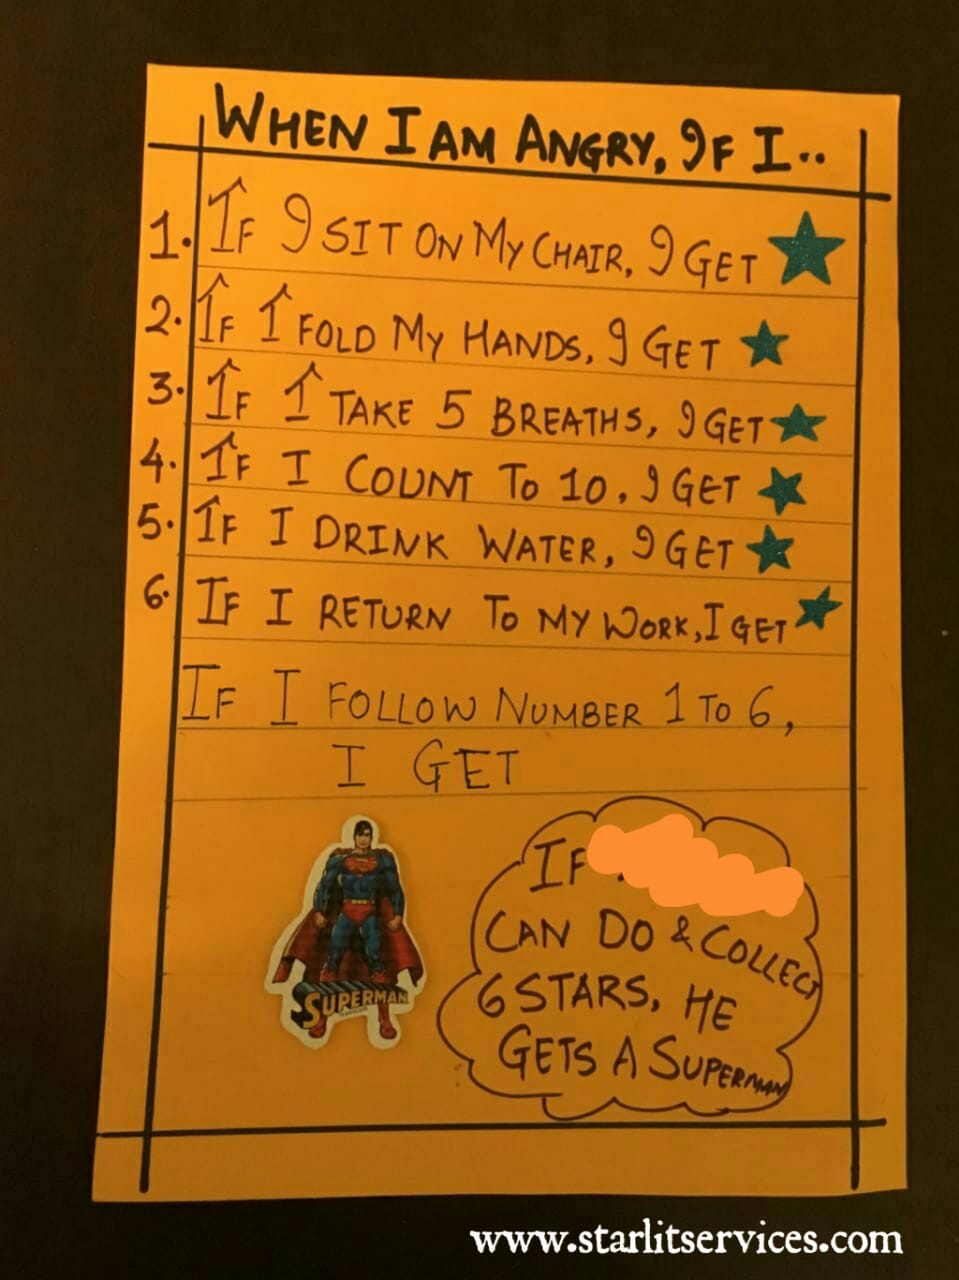 WHEN I AM ANGRY, IF I..
1. IF I SIT ON MY CHAIR, I GET
2. IF I FOLD MY HANDS, I GET
3. IF I TAKE 5 BREATHS, I GET
4. IF I COUNT TO 10, I GET
5. IF I DRINK WATER, I GET
6. IF I RETURN TO MY WORK, I GET
IF I FOLLOW NUMBER 1 TO 6,
I GET
SUPERMAN
IF
CAN DO & COLLECT
6 STARS, HE
GETS A SUPERMAN
www.starlitservices.com